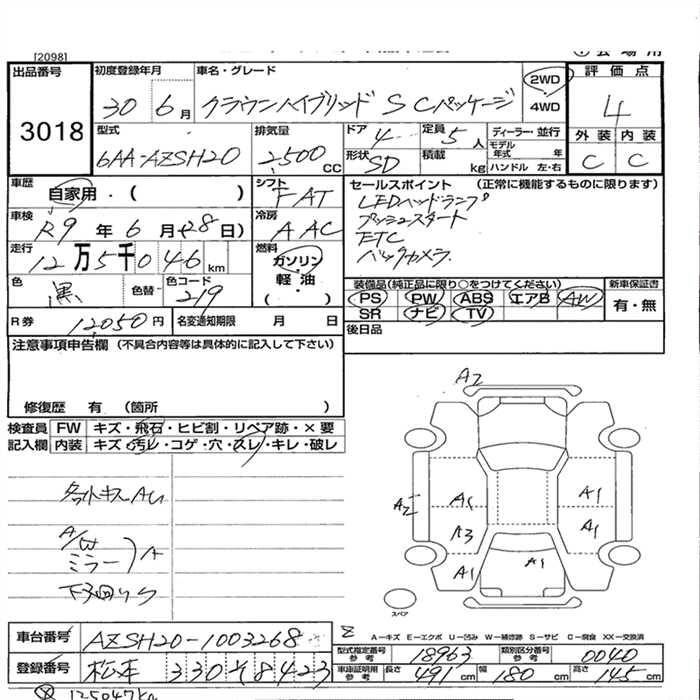 [2098]
出品番号 3018
初度登録年月 30 6月
車名・グレード クラウンハイブリッド S Cパッケージ
2WD
4WD
評価点 4
外装 内装
C C
型式 6AA-AZSH20
排気量 2500 CC
ドア 4
定員 5人
形状 SD
積載 kg
ディーラー・並行
モデル年式 年
ハンドル 左・右
車歴 自家用・( )
シフト FAT
車検 R9年6月(28日)
冷房 AAC
走行 12万5千046km
燃料 ガソリン・軽油・( )
色 黒 色替 色コード 219
R券 12050円
名変通知期限 月 日
セールスポイント (正常に機能するものに限ります)
LEDヘッドランプ
プッシュスタート
ETC
バックカメラ
装備品(純正品に限り○をつけてください)
新車保証書
PS PW ABS エアB AW
SR ナビ TV
有・無
後日品
注意事項申告欄 (不具合内容等は具体的に記入して下さい)
修復歴 有 (箇所 )
検査員記入欄
FW キズ・飛石・ヒビ割・リペア跡・×要
内装 キズ・汚レ・コゲ・穴・スレ・キレ・破レ
A/W
ミラー
A
A2
A2
A1
A3
A1
A1
A1
A1
スペア
車台番号 AZSH20-1003268
A-キズ E-エクボ U-凹み W-補修跡 S-サビ C-腐食 XX-交換済
型式指定番号 参考 18963
類別区分番号 参考 0040
登録番号 松本 330 8423
車庫証明用 参考 長さ 491cm 幅 180cm 高さ 145cm
125047km